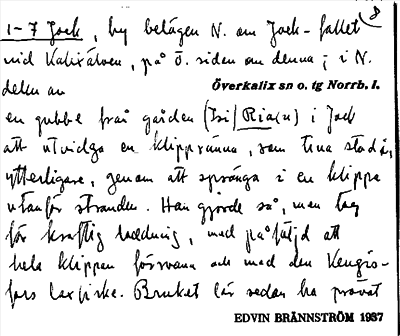 1-7 Jock, by belägen N. om Jock-fallet 8
vid Kalixälven, på ö. sidan om denna; i N.
delen av
Överkalix sn o. tg Norrb. l.
en gubbe från gården Ria(n) i Jock
att utvidga en klippränna, som
ytterligare, genom att spränga i en klippa
utanför stranden. Han gjorde så, men tog
för kraftig laddning, med påföljd att
hela klippan försvann och med den Kengis-
fors laxfiske. Bruket lär sedan ha prövat
EDVIN BRÄNNSTRÖM 1937